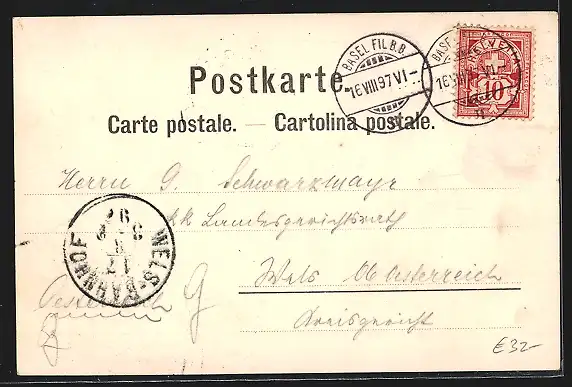 BASEL FIL.B.B.
16.VIII.97.VI-
HELVETIA
10
Postkarte.
Carte postale. — Cartolina postale.
Herrn G. Schwarzmayr
kk Landesgerichtsrath
Wels Ob Oesterreich
Kreisgericht
WELS-BAHNHOF
17
8
97
G
€32-